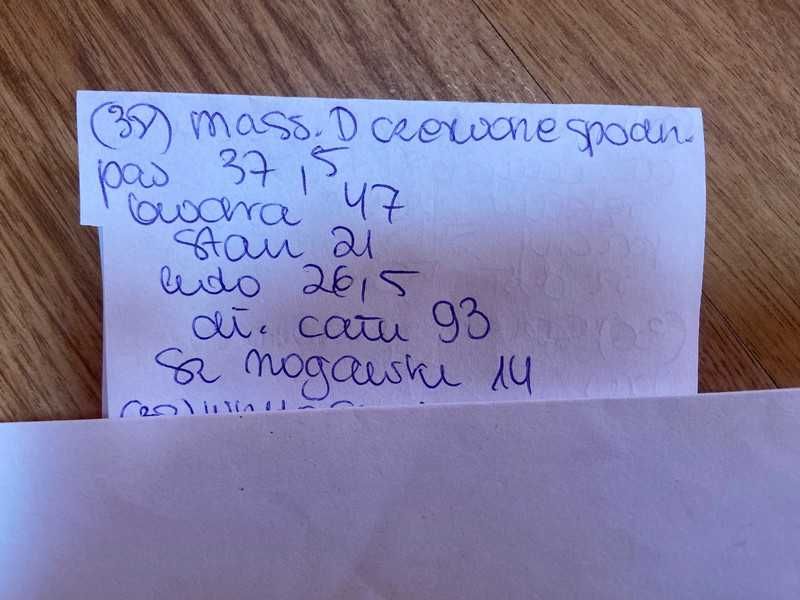 (38) mass. D czerwone spodn.
pas 37,5
biodra 47
stan 21
udo 26,5
dł. całk 93
sz nogawki 14